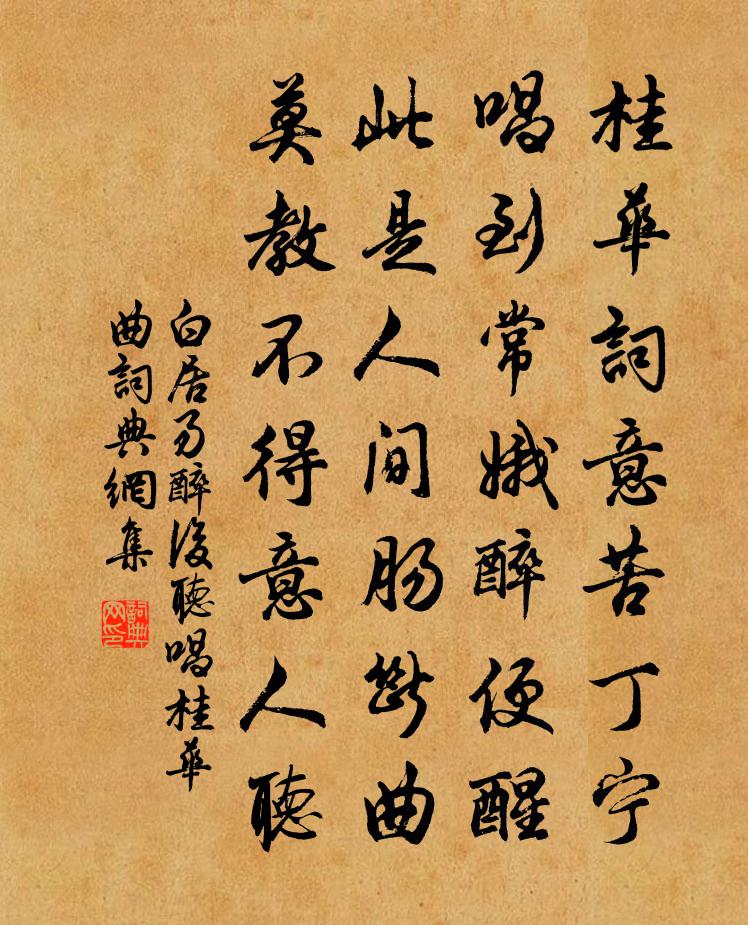 桂華詞意苦丁宁
唱到常娥醉便醒
此是人间肠斷曲
莫教不得意人聽
白居易醉後聽唱桂華
曲詞典網集
詞典
网印